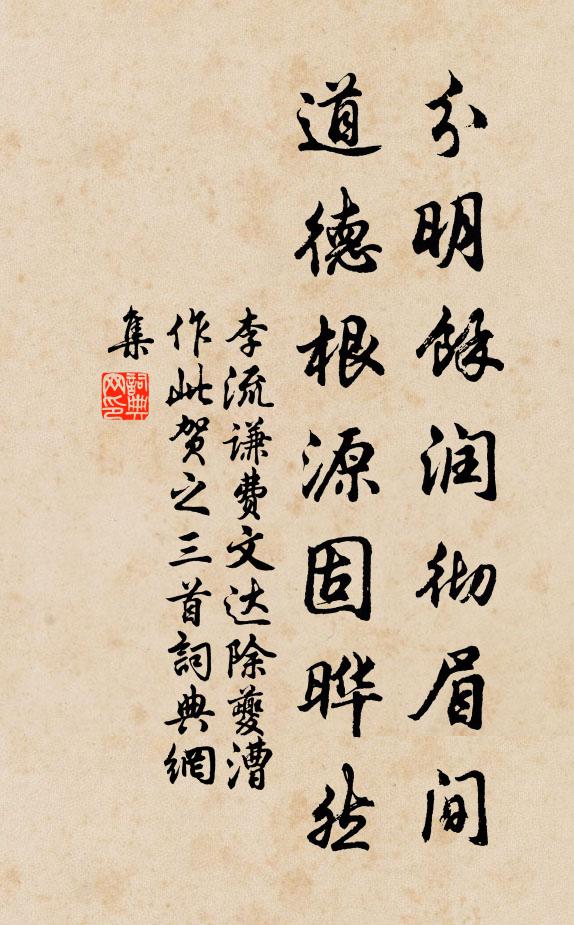 分明余润彻眉间
道德根源固晔然
李流谦费文达除夔漕
作此贺之三首詞典網
集
詞典
网印